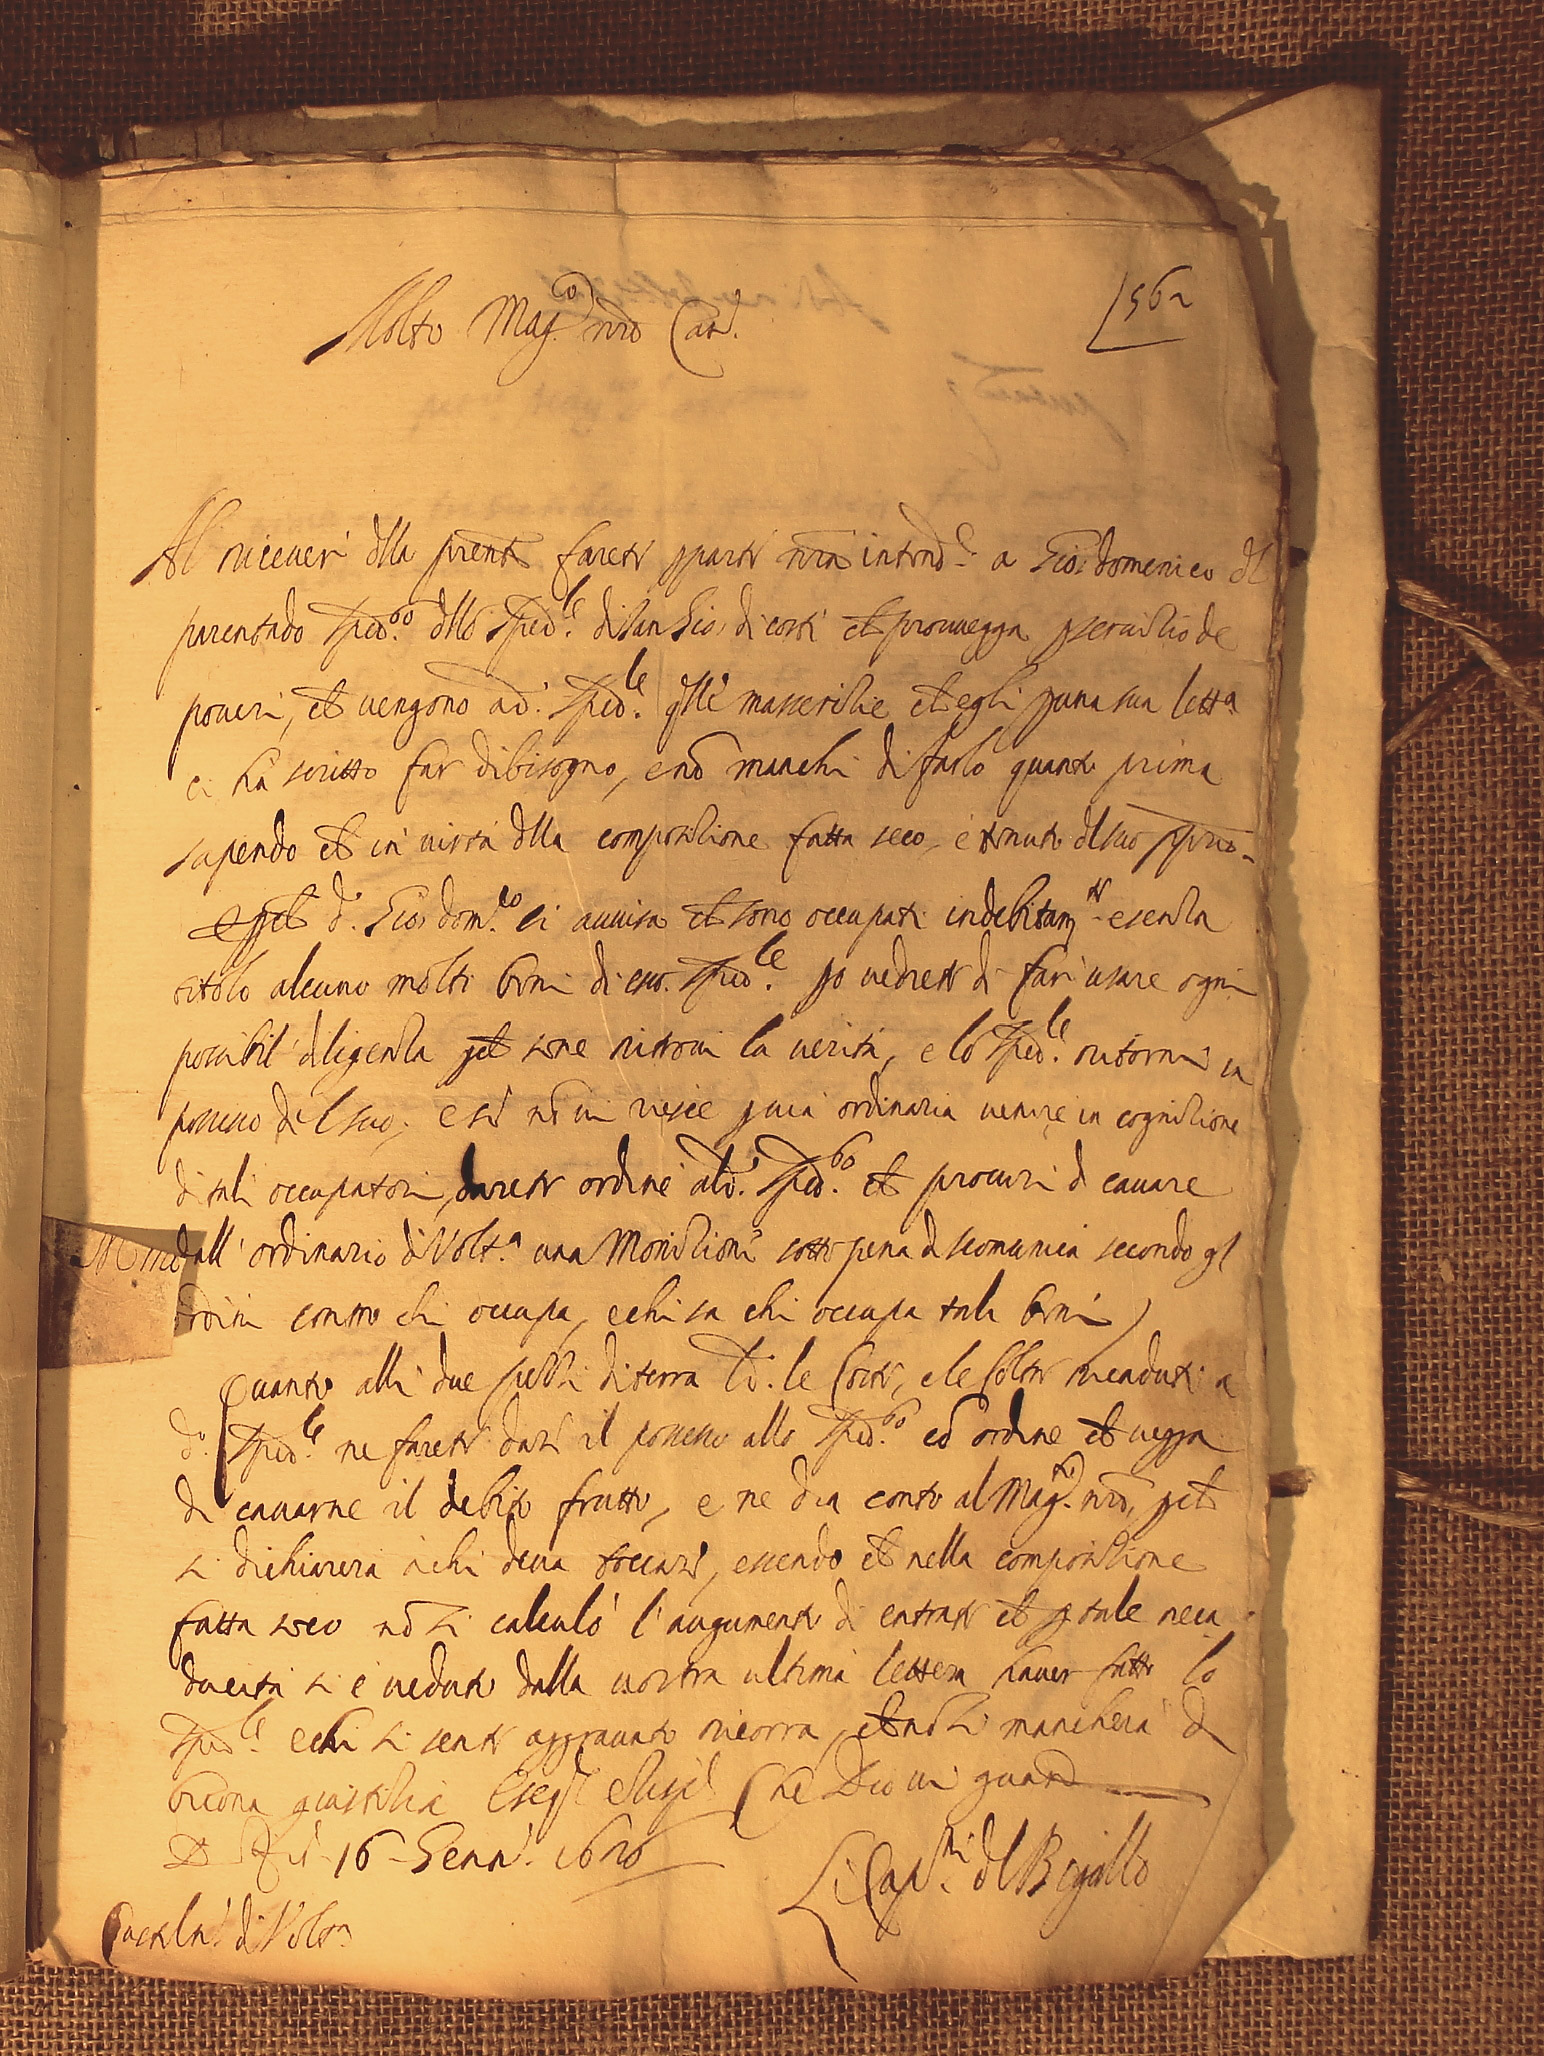 562
Molto Mag.co nro Car.
Al ricever dlla prente farete pparte nra intend.e a Gio: domenico dl
parentado Sped.go dllo Sped.le di San Gio: di corti ch provvegga p servitio de
poveri, ch vengono a d.o Sped.le qlle masseritie ch egli p una sua lett.a
ci ha scritto far di bisogno, e nō manchi di farlo quanto prima
sapendo ch in virtù dlla compositione fatta seco, è tenuto dl suo pprio
E pch d.o Gio: dom.co ci avvisa ch sono occupati indebitam.te e senza
titolo alcuno molti beni di esso Sped.le po vedrete di far usare ogni
possibil diligenza pch se ne ritrovi la verità, e lo Sped.le ritorni in
possesso del suo, e se nō vi riesce p via ordinaria venire in cognitione
di tali occupatori, darete ordine al d.o Sped.go ch procuri di cavare
dall' ordinario di Volt.a una Monitione sotto pena di scomunica secondo gl
ordini contro chi occupa, e chi sa chi occupa tali beni
Quanto alli due pezzi di terra d.i le Corti, e le Coltre ricaduti a
d.o Sped.le ne farete dare il possesso allo Sped.go cō ordine ch vegga
di cavarne il debito frutto, e ne dia conto al Mag.to nro, pch
si dichiarerà a chi deva toccare, essendo ch nella compositione
fatta seco nō si calculò l'augumento di entrate ch p tale reca
ducità si è veduto dalla vostra ultima lettera haver fatto lo
Sped.le e chi si sente aggravato ricorra, ch nō si mancherà di
buona giustitia Che Dio vi guardi
16 Genn.o 1626
Li Cap.ni dl Bigallo
di Volt.a